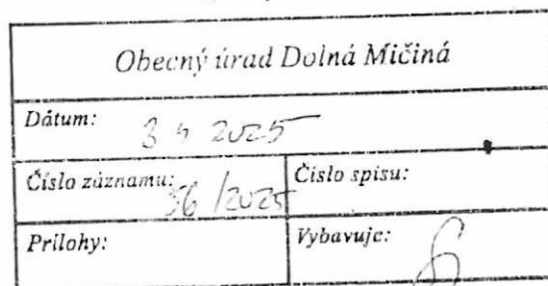 Obecný úrad Dolná Mičiná
Dátum: 3 4 2025
Číslo záznamu: 56/2025 Číslo spisu:
Prílohy: Vybavuje: